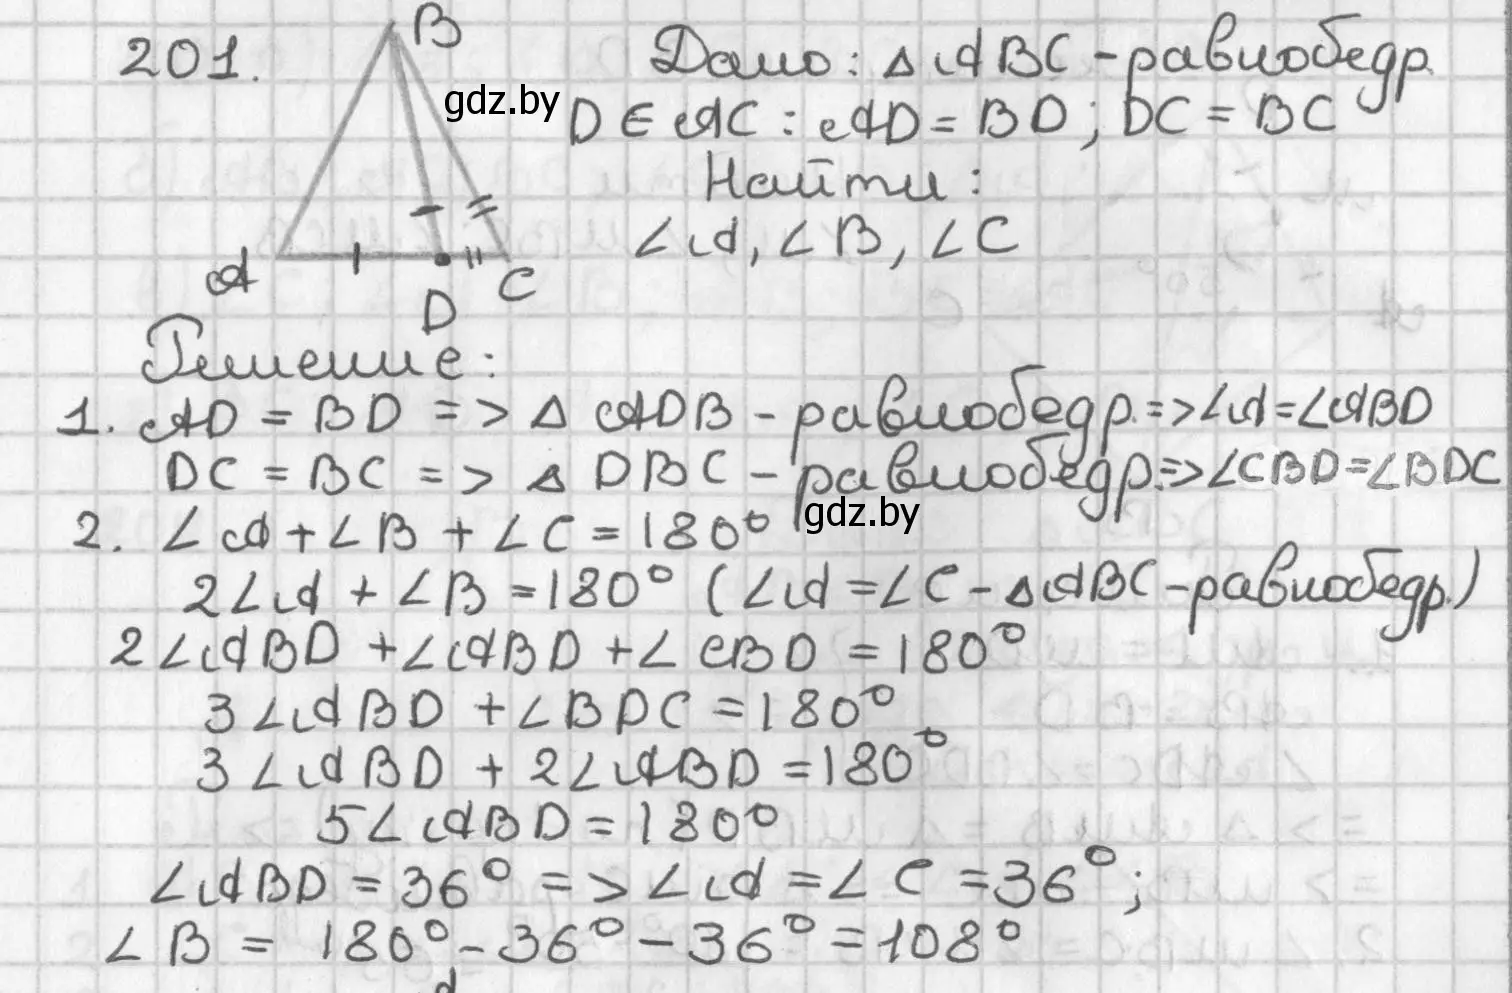 201.
B
A
D
C
Дано: △ABC - равнобедр.
D ∈ AC : AD = BD; DC = BC
Найти:
∠A, ∠B, ∠C
gdz.by
Решение:
1. AD = BD => △ ADB - равнобедр. => ∠A = ∠ABD
DC = BC => △ DBC - равнобедр. => ∠CBD = ∠BDC
gdz.by
2. ∠A + ∠B + ∠C = 180°
2∠A + ∠B = 180° (∠A = ∠C - △ABC - равнобедр.)
2∠ABD + ∠ABD + ∠CBD = 180°
3∠ABD + ∠BDC = 180°
3∠ABD + 2∠ABD = 180°
5∠ABD = 180°
∠ABD = 36° => ∠A = ∠C = 36°;
∠B = 180° - 36° - 36° = 108°